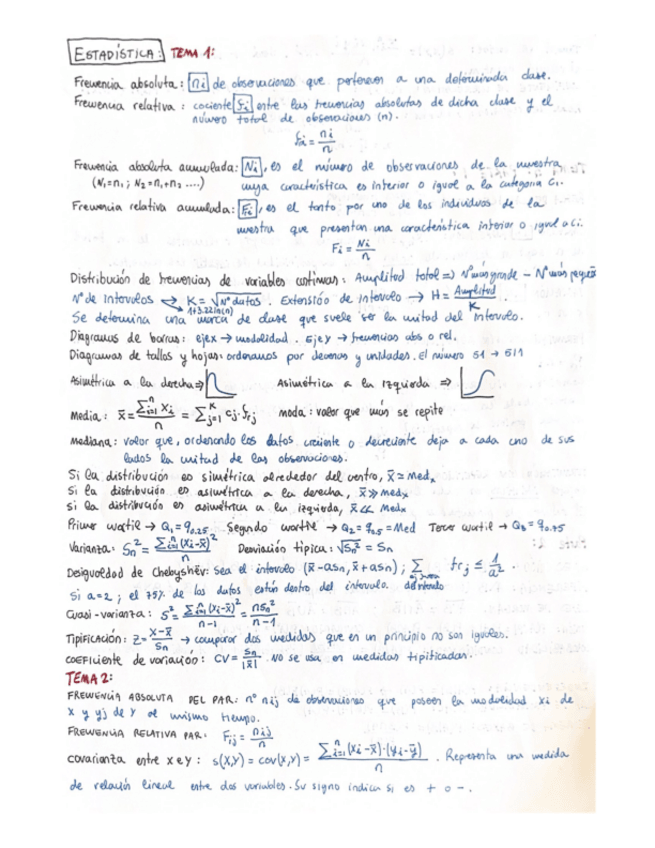 ESTADÍSTICA: TEMA 1:
Frecuencia absoluta: ni de observaciones que pertenecen a una determinada clase.
Frecuencia relativa: cociente fi entre las frecuencias absolutas de dicha clase y el
número total de observaciones (n).
fi = ni/n
Frecuencia absoluta acumulada: Ni, es el número de observaciones de la muestra
(N1=n1; N2=n1+n2 ....) cuya característica es inferior o igual a la categoría Ci.
Frecuencia relativa acumulada: Fi, es el tanto por uno de los individuos de la
muestra que presentan una característica inferior o igual a Ci.
Fi = Ni/n
Distribución de frecuencias de variables continuas: Amplitud total => Nº más grande - Nº más pequeño
Nº de Intervalos → K = √Nº datos. Extensión de intervalo → H = Amplitud/K.
1+3.22 ln(n)
Se determina una marca de clase que suele ser la mitad del intervalo.
Diagramas de barras: eje x → modalidad. Eje y → frecuencias abs o rel.
Diagramas de tallos y hojas: ordenamos por decenas y unidades. El número 51 → 5|1
Asimétrica a la derecha => Asimétrica a la izquierda =>
Media: x̄ = Σⁿi=1 xi/n = Σᴷj=1 cj·frj moda: valor que más se repite
Mediana: valor que, ordenando los datos creciente o decreciente deja a cada uno de sus
lados la mitad de las observaciones.
Si la distribución es simétrica alrededor del centro, x̄ ≃ Medx
Si la distribución es asimétrica a la derecha, x̄ >> Medx
Si la distribución es asimétrica a la izquierda, x̄ << Medx
Primer cuartil → Q1 = q0.25 Segundo cuartil → Q2 = q0.5 = Med Tercer cuartil → Q3 = q0.75
Varianza: Sn² = Σⁿi=1 (xi-x̄)²/n Desviación típica: √Sn² = Sn
Desigualdad de Chebyshëv: Sea el intervalo (x̄-aSn, x̄+aSn); Σ frj ≤ 1/a².
del intervalo
Si a=2; el 75% de los datos están dentro del intervalo.
Cuasi-varianza: S² = Σⁿi=1 (xi-x̄)²/n-1 = nSn²/n-1
Tipificación: Z = x-x̄/Sn → comparar dos medidas que en un principio no son iguales.
COEFICIENTE de variación: CV = Sn/|x̄|. No se usa en medidas tipificadas.
TEMA 2:
FRECUENCIA ABSOLUTA DEL PAR: nº nij de observaciones que poseen la modalidad xi de
X y yj de Y al mismo tiempo.
FRECUENCIA RELATIVA PAR: Fij = nij/n
Covarianza entre x e y: S(X,Y) = cov(X,Y) = Σⁿi=1 (xi-x̄)·(yi-ȳ)/n. Representa una medida
de relación lineal entre dos variables. Su signo indica si es + o -.